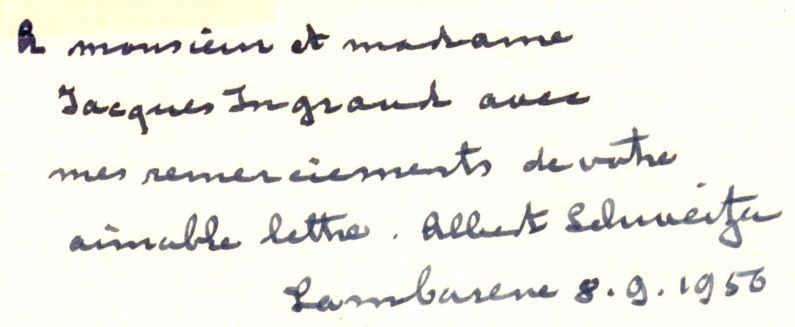 A monsieur et madame
Jacques Ingrand avec
mes remerciements de votre
aimable lettre. Albert Schweitzer
Lambarene 8.9.1956